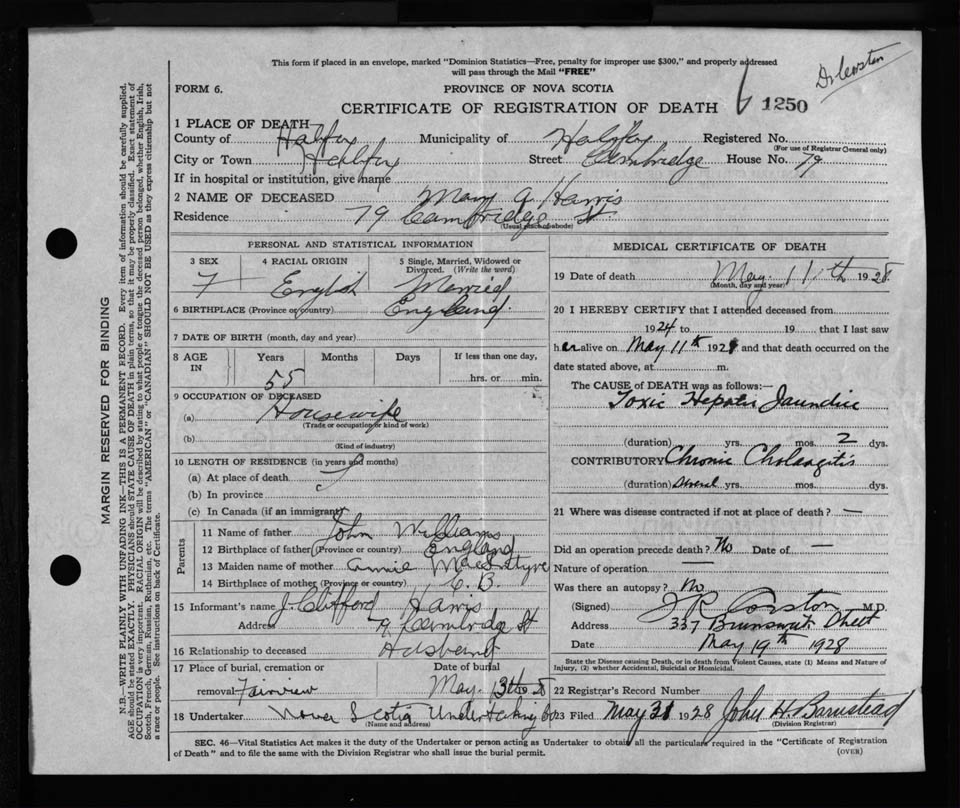 This form if placed in an envelope, marked "Dominion Statistics—Free, penalty for improper use $300," and properly addressed
will pass through the Mail "FREE"
FORM 6.
PROVINCE OF NOVA SCOTIA
CERTIFICATE OF REGISTRATION OF DEATH
1250
1 PLACE OF DEATH
County of Halifax Municipality of Halifax Registered No.
(For use of Registrar General only)
City or Town Halifax Street Cambridge House No. 79
If in hospital or institution, give name
2 NAME OF DECEASED Mary A. Harris
Residence 79 Cambridge St
(Usual place of abode)
PERSONAL AND STATISTICAL INFORMATION
3 SEX 4 RACIAL ORIGIN 5 Single, Married, Widowed or
Divorced. (Write the word)
F English Married
6 BIRTHPLACE (Province or country) England.
7 DATE OF BIRTH (month, day and year)
8 AGE IN Years Months Days If less than one day,
55 hrs. or min.
9 OCCUPATION OF DECEASED
(a) Housewife
(Trade or occupation or kind of work)
(b)
(Kind of industry)
10 LENGTH OF RESIDENCE (in years and months)
(a) At place of death
(b) In province
(c) In Canada (if an immigrant)
Parents
11 Name of father John Williams
12 Birthplace of father (Province or country) England
13 Maiden name of mother Annie MacIntyre
14 Birthplace of mother (Province or country) C. B.
15 Informant's name J. Clifford Harris
Address 79 Cambridge St
16 Relationship to deceased Husband
17 Place of burial, cremation or Date of burial
removal Fairview May 13th 28
18 Undertaker Nova Scotia Undertaking Co
(Name and address)
MEDICAL CERTIFICATE OF DEATH
19 Date of death May 11th 1928
(Month, day and year)
20 I HEREBY CERTIFY that I attended deceased from
1924 to 19 that I last saw
her alive on May 11th 1928 and that death occurred on the
date stated above, at m.
The CAUSE of DEATH was as follows:—
Toxic Hepatic Jaundice
(duration) yrs. mos. 2 dys.
CONTRIBUTORY Chronic Cholangitis
(duration) several yrs. mos. dys.
21 Where was disease contracted if not at place of death? —
Did an operation precede death? No Date of —
Nature of operation —
Was there an autopsy? No
(Signed) Corston M.D.
Address 337 Brunswick Street
Date May 19th 1928
State the Disease causing Death, or in death from Violent Causes, state (1) Means and Nature of
Injury, (2) whether Accidental, Suicidal or Homicidal.
22 Registrar's Record Number
23 Filed May 31 1928 John H. Barnstead
(Division Registrar)
SEC. 46—Vital Statistics Act makes it the duty of the Undertaker or person acting as Undertaker to obtain all the particulars required in the "Certificate of Registration
of Death" and to file the same with the Division Registrar who shall issue the burial permit.
(OVER)
MARGIN RESERVED FOR BINDING
N.B.—WRITE PLAINLY WITH UNFADING INK—THIS IS A PERMANENT RECORD. Every item of information should be carefully supplied.
AGE should be stated EXACTLY. PHYSICIANS should STATE CAUSE OF DEATH in plain terms, so that it may be properly classified. Exact statement of
OCCUPATION is very important. RACIAL ORIGIN will be described by stating to what people or tongue the deceased person belonged, whether English, Irish,
Scotch, French, German, Russian, Ruthenian, etc. The terms "AMERICAN" or "CANADIAN" SHOULD NOT BE USED as they express citizenship but not
a race or people. See instructions on back of Certificate.